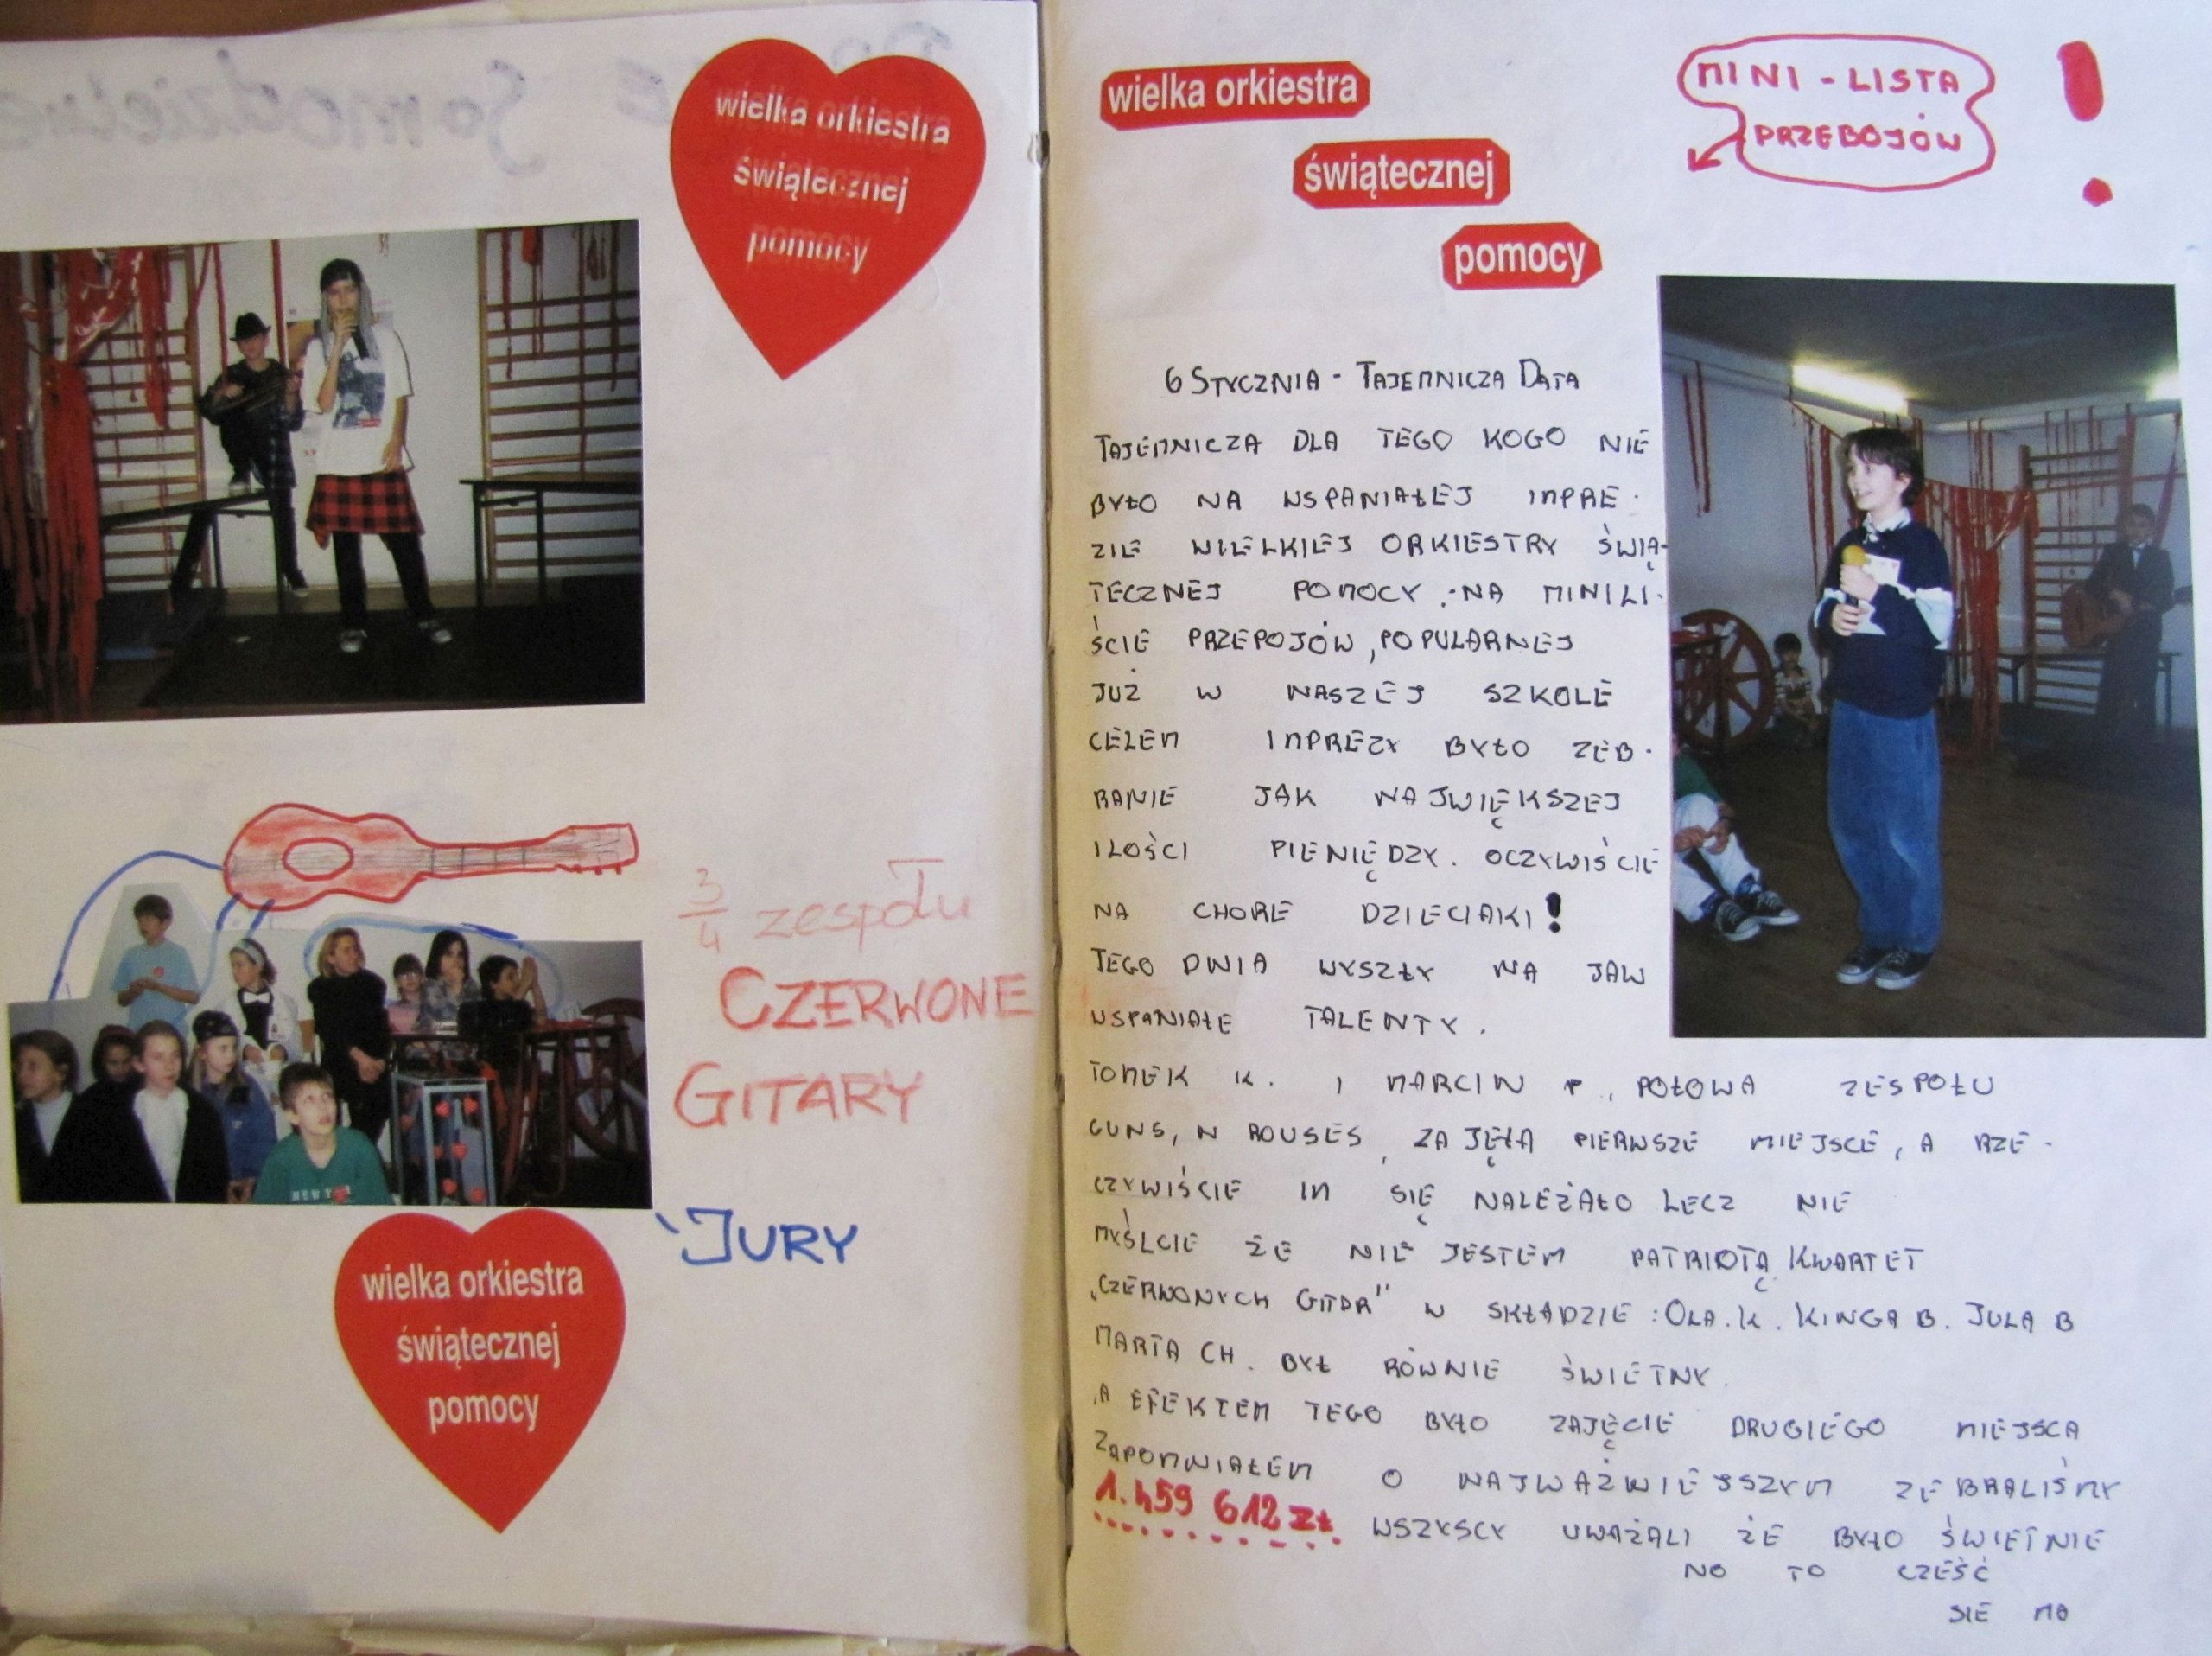 wielka orkiestra
świątecznej
pomocy
3/4 zespołu
CZERWONE
GITARY
JURY
wielka orkiestra
świątecznej
pomocy
wielka orkiestra
świątecznej
pomocy
MINI - LISTA
PRZEBOJÓW
!
6 STYCZNIA - TAJEMNICZA DATA
TAJEMNICZA DLA TEGO KOGO NIE
BYŁO NA WSPANIAŁEJ IMPRE-
ZIE WIELKIEJ ORKIESTRY ŚWIĄ-
TECZNEJ POMOCY :-NA MINILI-
ŚCIE PRZEPOJÓW, POPULARNEJ
JUŻ W NASZEJ SZKOLE
CELEM IMPREZY BYŁO ZEB-
RANIE JAK NAJWIĘKSZEJ
ILOŚCI PIENIĘDZY. OCZYWIŚCIE
NA CHORE DZIECIAKI!
TEGO DNIA WYSZŁY NA JAW
WSPANIAŁE TALENTY.
TOMEK K. I MARCIN P, POŁOWA ZESPOŁU
GUNS, N ROUSES, ZAJĘŁA PIERWSZE MIEJSCE, A RZE-
CZYWIŚCIE IM SIĘ NALEŻAŁO LECZ NIE
MYŚLCIE ŻE NIE JESTEM PATRIOTĄ KWARTET
„CZERWONYCH GITAR" W SKŁADZIE : OLA. K. KINGA B. JULA B
MARTA CH. BYŁ RÓWNIE ŚWIETNY.
A EFEKTEM TEGO BYŁO ZAJĘCIE DRUGIEGO MIEJSCA
ZAPOMNIAŁEM O NAJWAŻNIEJSZYM ZEBRALIŚMY
1.459 612 ZŁ WSZYSCY UWAŻALI ŻE BYŁO ŚWIETNIE
NO TO CZEŚĆ
SIE MA